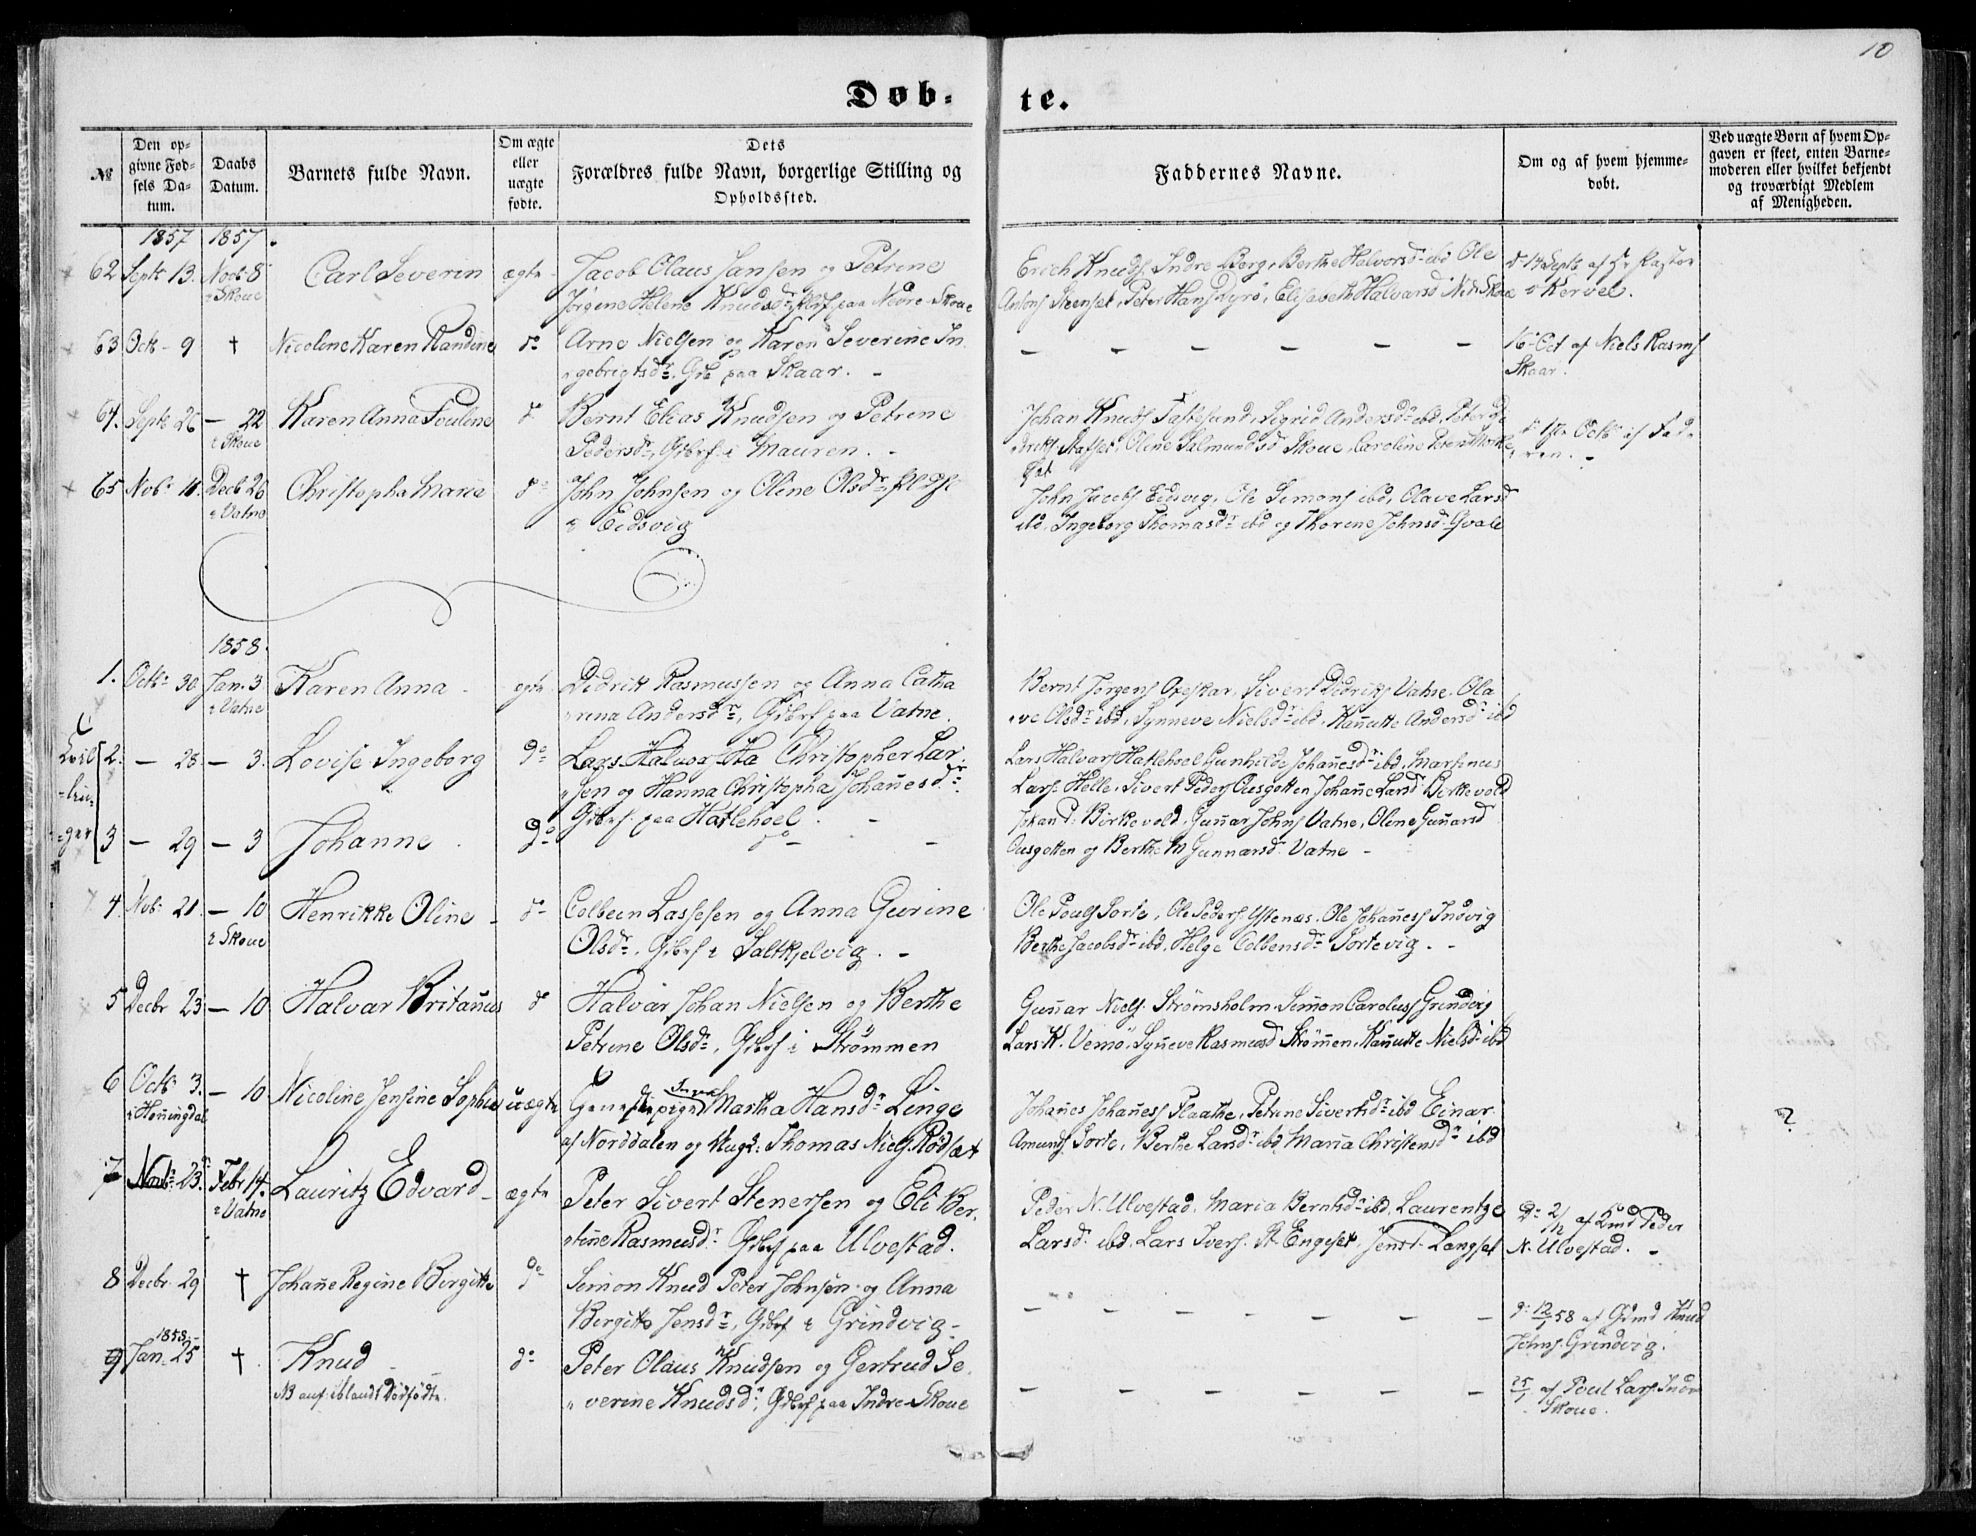 10
Døb-
te.
№
Den op-
givne Fød-
sels Da-
tum.
Daabs
Datum.
Barnets fulde Navn.
Om ægte
eller
uægte
fødte.
Dets
Forældres fulde Navn, borgerlige Stilling og
Opholdssted.
Faddernes Navne.
Om og af hvem hjemme-
døbt.
Ved uægte Børn af hvem Op-
gaven er skeet, enten Barne-
moderen eller hvilket bekjendt
og troværdigt Medlem
af Menigheden.
1857 1857
62 Sept 13. Novb 8 Carl Severin ægte Jacob Claus Jansen og Petrine
i Skoue Jørgine Helene Knudsdr paa Nedre-Skoue
Erich Knuds. Indre Berg, Berthe Halvorsd ibd Ole
Antons Steenset, Peter Hans Dyrø, Elisabeth Halvorsd N. Skoue
14 Sept af Hr Pastor
Kervel.
63 Oct - 9 † Nicoline Karen Randine do Arne Nielsen og Karen Severine In-
gebrigtsdr. Gbf paa Skaar. -
- - - - - -
16 Oct af Niels Rasms
Skaar.
64. Sept 26 - 22 Karen Anna Pouline do Bernt Elias Knudsen og Petrine
i Skoue Pedersdr, Gbrf. i Mauren. -
Johan Knuds , Sigrid Andersdr ibd, Peter Di-
driks , Oline Salmundsd Skoue, Caroline Peters
do 17 Octb af Fad-
ren. -
65 Nob. 11. Decb 26 Christopha Marie do John Johnsen og Oline Olsdr,
i Vatne i Eidsvig
John Jacobs Eidsvig, Ole Simons ibd, Olave Larsd
ibd, Ingeborg Thomasdr ibd og Thorine Johnsd. Gvale
1858.
1. Octb 30 Jan. 3 Karen Anna - ægte Didrik Rasmussen og Anna Catha
i Vatne rina Andersdr, Gbrf paa Vatne.
Bernt Jørgens Opskar, Sivert Didriks Vatne, Ola
ve Olsdr ibd, Synneve Nielsdr ibd, Hanutte Andersdr ibd
Tvil-
lin-
ger
2. - 28 - 3. Lovise Ingeborg do Lars Halvors Ha Christopher Lar-
sen og Hanna Christopha Johanesdr.
Gbrf. paa Hatlehoel. -
Lars Halvors Hatlehoel, Gunhilde Johanesdr ibd, Martinus
Lars. Helle, Sivert Peders Ousgotten Johane Larsd Birkevold
3 - 29 - 3 Johanne. do do - -
Johan D. Birkevold, Gunar Johns Vatne, Oline Gunarsd
Ousgotten og Berthe M Gunnarsd. Vatne -
4 Nob. 21. - 10 Henrikke Oline - do Colbeen Lassesen og Anna Gurine
i Skoue Olsdr, Gbrf i Saltkjelvig. -
Ole Pouls Sorte, Ole Peders. Ystenæs, Ole Johanes Indvig
Berthe Jacobsdr ibd, Helge Colbensdr Sortevig. -
5 Decbr 23 - 10 Halvar Britanus do Halvar Johan Nielsen og Berthe
Petrine Olsdr, Gbrf i Strømmen
Gunar Niels. Strømsholm, Simon Carolus Grindvig
Lars K. Vemø, Syneve Rasmusd Strømen, Hanutte Nielsd ibd
6 Octb 3. - 10 Nicoline Jensine Sophie uægte Martha Hansdr Linge
i Honingdal af Norddalen og Ungk: Thomas Niels. Rødsæt
Johanes Johaness Flaathe, Petrine Sivertsdr ibd Einar
Amunds Sorte, Berthe Larsd ibd Maria Christensdr ibd
?
7 Novb. 23. Febr 14. Lauritz Edvard - ægte Peter Sivert Stenersen og Eli Ber-
i Vatne tine Rasmusdr Gbrf paa Ulvestad.
Peder N. Ulvestad, Maria Berntsd ibd, Laurentze
Larsd. ibd, Lars Ivers. St. Engeset, Jens T. Langset
Do 2/12 af Gmd Peder
N. Ulvestad. -
8 Decbr 29 † Johane Regine Birgitte do Simon Knud Peter Johnsen og Anna
Birgitte Jensdr, Gbrf i Grindvig -
- - - - - -
do 12/1 58 af Gmd Knud
Johns. Grindvig.
1858.
9 Jan. 25 † Knud - do Peter Olaus Knudsen og Gertrud Se-
NB anf. iblandt Dødfødte. verine Knudsdr, Gbrf paa Indre-Skoue
- - - - - -
25/1 af Poul Lars. Indre
Skoue.